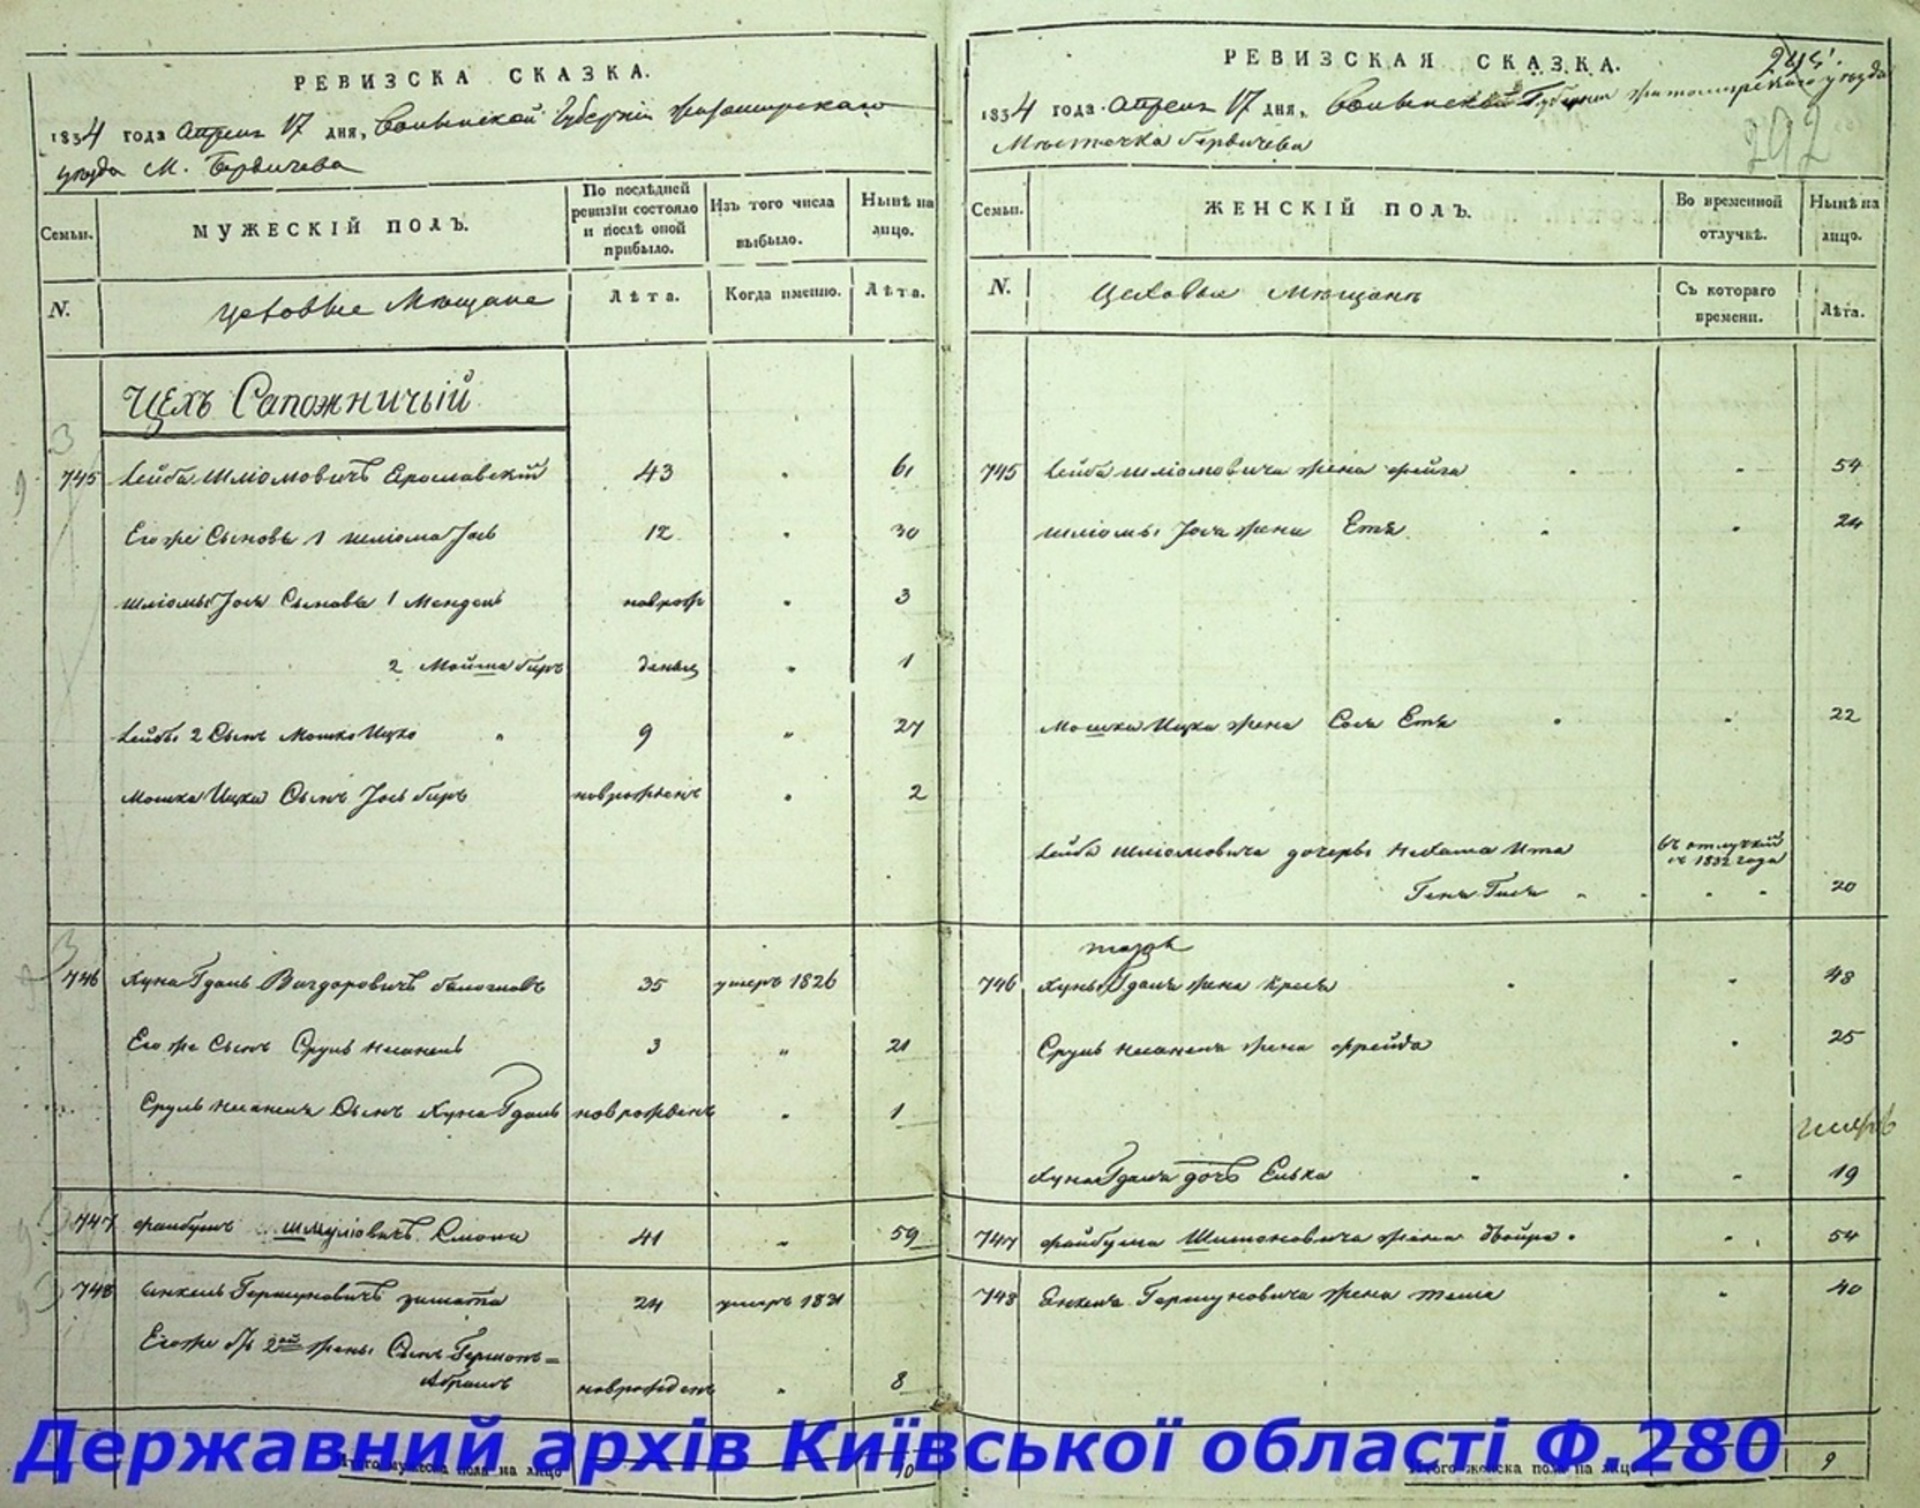 РЕВИЗСКА СКАЗКА.
1834 года Апреля 17 дня, Волынской Губернiи Житомирскаго
уезда М. Бердичева
Семьи.
МУЖЕСКIЙ ПОЛЪ.
По послѣдней ревизiи состояло и послѣ оной прибыло.
Изъ того числа выбыло.
Нынѣ на лицо.
N.
Цеховые Мещане
Лѣта.
Когда именно.
Лѣта.
ЦЕХЪ Сапожничьiй
745 Лейба Шлiомовичъ Ярославскiй 43 61
Его же Сыновья 1 Шлiома Iось 12 30
Шлiомы Iося Сыновья 1 Мендель новрож 3
2 Мойша Беръ денны 1
Лейбы 2 Сынъ Мошко Ицко 9 27
Мошка Ицка Сынъ Iось Беръ новрожденъ 2
746 Хуна Гдаль 35 умеръ 1826
Его же Сынъ Сруль 3 21
Сруль Сынъ Хуна Гдаль новрожденъ 1
747 Файбушъ Шмулiовичъ 41 59
748 Янкель Гершуновичъ 24 умеръ 1831
Его же 2ой жены Сынъ Гершонъ=
Абрамъ новрожденъ 8
Итого мужеска пола на лицо 10
РЕВИЗСКАЯ СКАЗКА.
245
1834 года Апреля 17 дня, Волынской Губернiи Житомирскаго уезда
Местечка Бердичева
292
Семьи.
ЖЕНСКIЙ ПОЛЪ.
Во временной отлучкѣ.
Нынѣ на лицо.
N.
Цеховые Мещане
Съ котораго времени.
Лѣта.
745 Лейба Шлiомовича жена Фейга 54
Шлiомы Iося жена Етя 24
Мошка Ицка жена Сося Етя 22
Лейба Шлiомовича дочерь Нехама Ита въ отлучкѣ съ 1832 года
20
746 Хуны Гдаля жена Крейя 48
Сруль жена Фрейда 25
Хуна Гдаля дочь Елька 19
747 Файбуша Шимоновича жена Двойра 54
748 Янкеля Гершуновича жена 40
Итого женска пола на лицо 9
Державний архів Київської області Ф.280